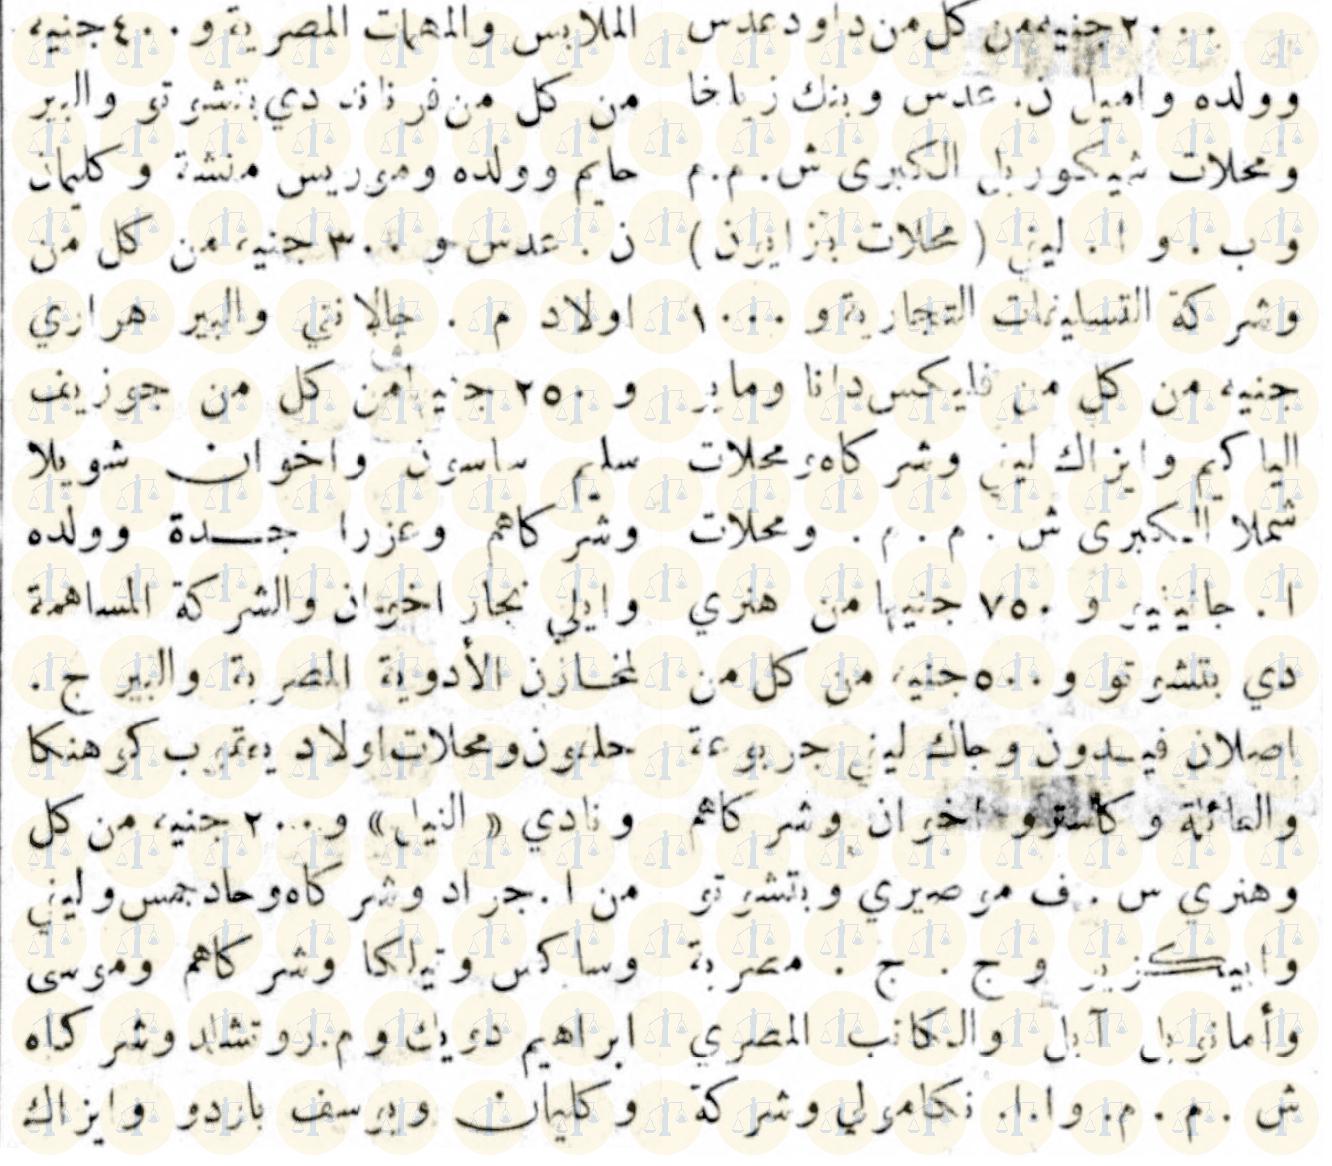 ٢٠٠٠ جنيه من كل من داود عدس
وولده واميل ن. عدس وبنك زياخا
ومحلات شيكوريل الكبرى ش. م. م
وب. و ا. ليني ( محلات بنزايون )
وشركة التسليفات التجارية و ١٠٠٠
جنيه من كل من فليكس دانا وماير
الياكيم وايزاك ليني وشركاه ومحلات
شملا الكبرى ش. م. م. ومحلات
ا. جانينيير و ٧٥٠ جنيها من هنري
دي بتشوتو و ٥٠٠ جنيه من كل من
اصلان فيدون وجاك ليني جربوعة
والعائلة وكاسترو اخوان وشركاهم
وهنري س. ف موصيري وبتشوتو
وابيكزير و ج. ج. مصرية
وأمانويل آبل والكاتب المصري
ش. م. م. و ا.ا. نكامولي وشركة
الملابس والمهمات المصرية و ٤٠٠ جنيه
من كل من فرناند دي بتشوتو والبير
حايم وولده وموريس منشة وكليمان
ن. عدس و ٣٠٠ جنيه من كل من
اولاد م. جالانتي والبير هراري
و ٢٥٠ جنيها من كل من جوزيف
سليم ساسون واخوان شويلا
وشركاهم وعزرا جدة وولده
وايلي نجار اخوان والشركة المساهمة
لمخازن الأدوية المصرية والبير ج.
حلفون ومحلات اولاد يعقوب كوهنكا
ونادي « النيل » و ٢٠٠ جنيه من كل
من ا. جراد وشركاه وحاد جمس وليني
وساكس وتيلكا وشركاهم وموسى
ابراهيم دويك و م. روتشلد وشركاه
وكليمان ويوسف باردو وايزاك